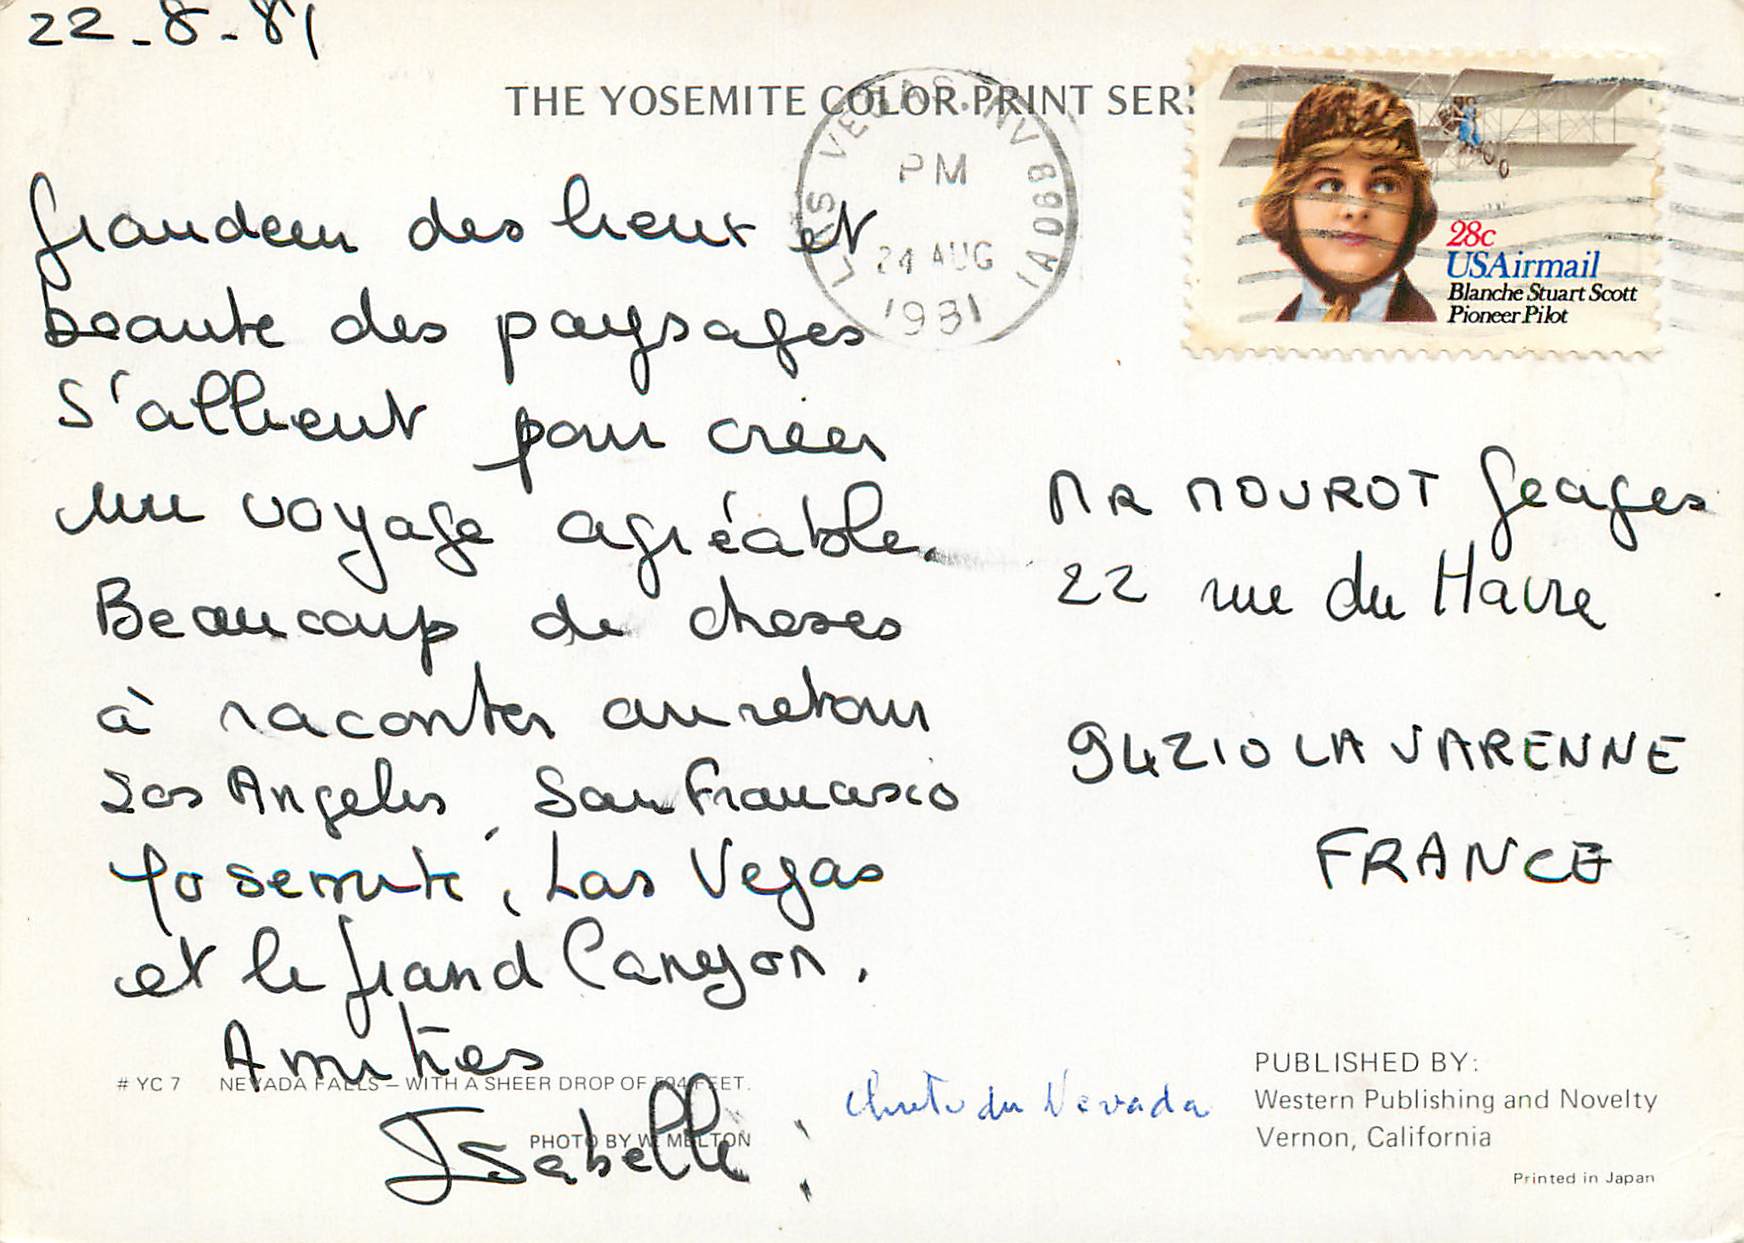 22-8-81
THE YOSEMITE COLOR PRINT SERI
LAS VEGAS, NV 890
PM
24 AUG
1981
28c
USAirmail
Blanche Stuart Scott
Pioneer Pilot
grandeur des lieux et
beaute des paysages
s'allient pour creer
un voyage agréable.
Beaucoup de choses
à raconter au retour
Los Angeles, San Francisco
Yosemite, Las Vegas
et le grand Canyon.
Amitiés
Isabelle
MR MOUROT Georges
22 rue du Havre
94210 LA VARENNE
FRANCE
# YC 7 NEVADA FALLS – WITH A SHEER DROP OF 594 FEET.
PHOTO BY W. MELTON
chute du Nevada
PUBLISHED BY:
Western Publishing and Novelty
Vernon, California
Printed in Japan